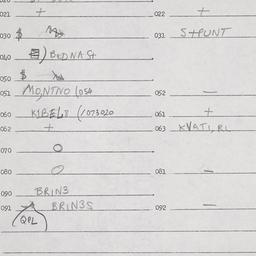 021 + 022 +
030 $ 031 S+PUNT
040 ) BEDNA St
050 $
051 MO,NTNO (054 052 —
060 KIBEL8 (1073020 061 +
062 + 063 KVATI, RL
070 O
080 O 081 —
090 BRIN3
091 BRIN3S 092 —
QPL